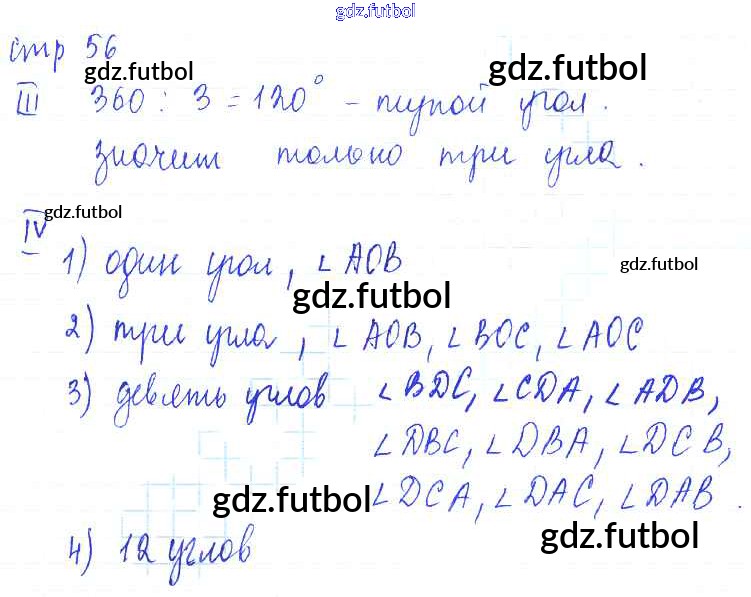 gdz.futbol
стр 56
gdz.futbol
gdz.futbol
III 360 : 3 = 120° - тупой угол.
значит только три угла.
gdz.futbol
IV
1) один угол, ∠AOB
gdz.futbol
gdz.futbol
2) три угла, ∠AOB, ∠BOC, ∠AOC
3) девять углов ∠BDC, ∠CDA, ∠ADB,
∠DBC, ∠DBA, ∠DCB,
∠DCA, ∠DAC, ∠DAB.
gdz.futbol
gdz.futbol
4) 12 углов